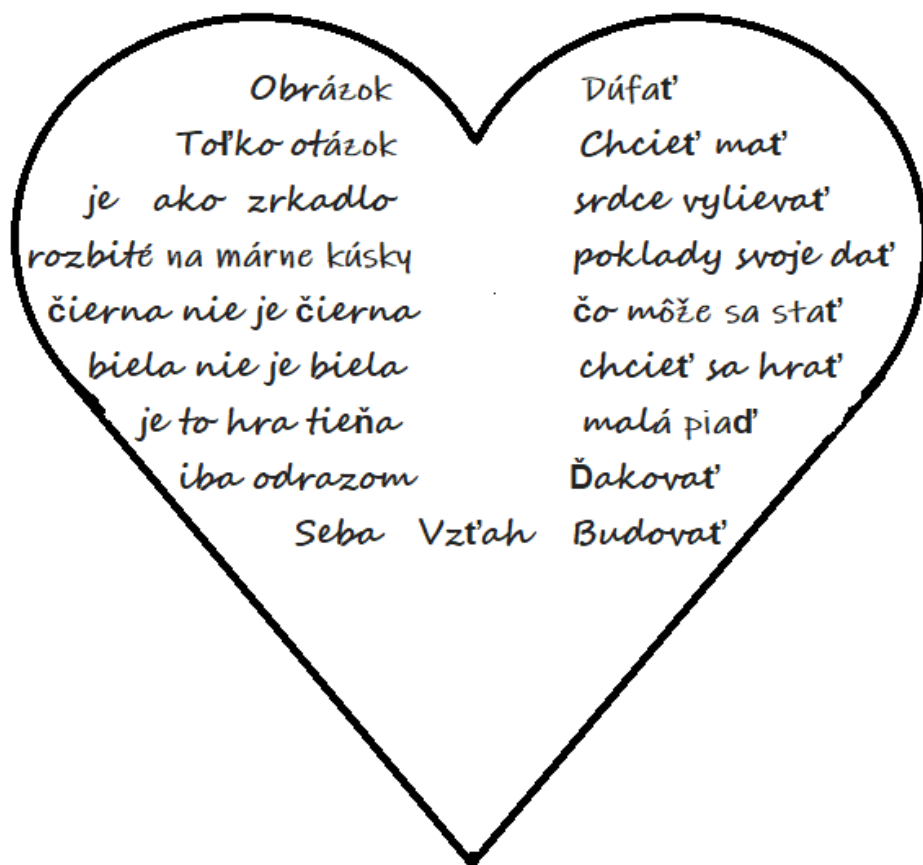 Obrázok
Toľko otázok
je ako zrkadlo
rozbité na márne kúsky
čierna nie je čierna
biela nie je biela
je to hra tieňa
iba odrazom
Seba Vzťah Budovať
Dúfať
Chcieť mať
srdce vylievať
poklady svoje dať
čo môže sa stať
chcieť sa hrať
malá piaď
Ďakovať